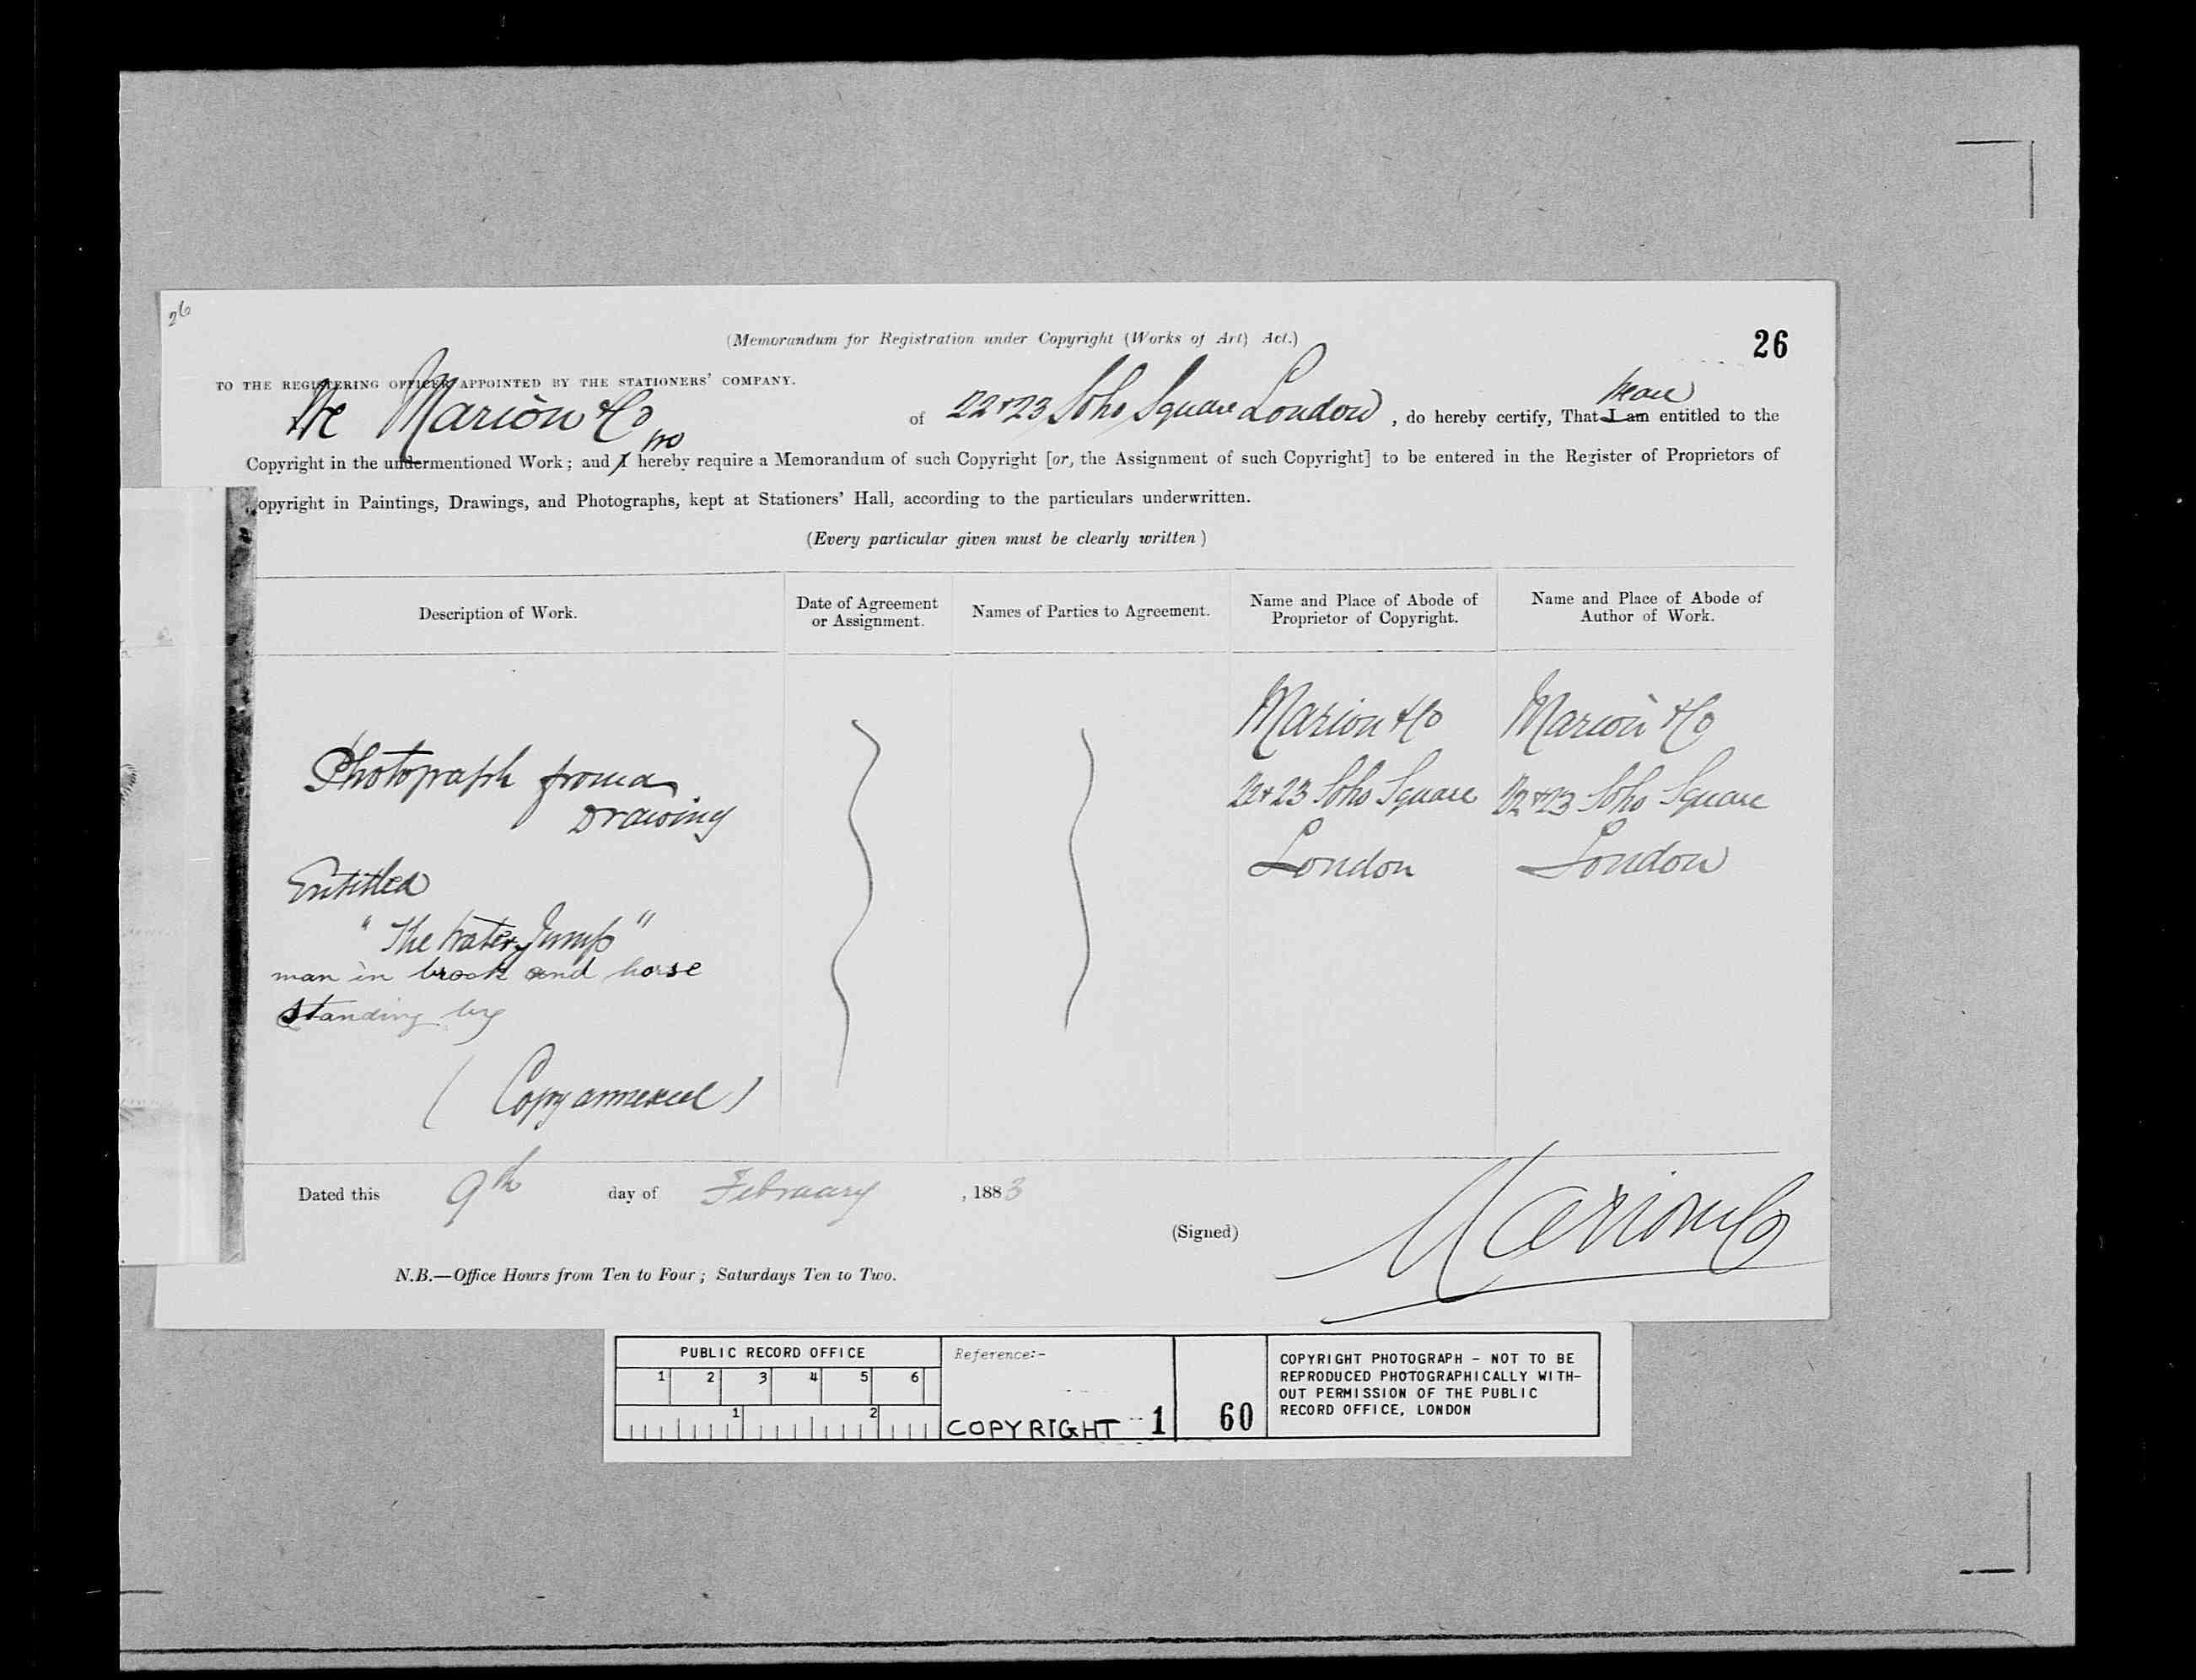 26
(Memorandum for Registration under Copyright (Works of Art) Act.)
26
TO THE REGISTERING OFFICER APPOINTED BY THE STATIONERS' COMPANY.
We Marion & Co of 22 & 23 Soho Square London, do hereby certify, That I am we are entitled to the
Copyright in the undermentioned Work; and I we hereby require a Memorandum of such Copyright [or, the Assignment of such Copyright] to be entered in the Register of Proprietors of
opyright in Paintings, Drawings, and Photographs, kept at Stationers' Hall, according to the particulars underwritten.
(Every particular given must be clearly written)
Description of Work.
Date of Agreement
or Assignment.
Names of Parties to Agreement.
Name and Place of Abode of
Proprietor of Copyright.
Name and Place of Abode of
Author of Work.
Photograph from a
Drawing
Entitled
"The Water Jump"
man in brook and horse
standing by
(Copy annexed)
Marion & Co
22 & 23 Soho Square
London
Marion & Co
22 & 23 Soho Square
London
Dated this 9th day of February, 1883
(Signed) Marion & Co
N.B.—Office Hours from Ten to Four; Saturdays Ten to Two.
PUBLIC RECORD OFFICE
1 2 3 4 5 6
1 2
Reference:-
COPYRIGHT 1
60
COPYRIGHT PHOTOGRAPH - NOT TO BE
REPRODUCED PHOTOGRAPHICALLY WITH-
OUT PERMISSION OF THE PUBLIC
RECORD OFFICE, LONDON